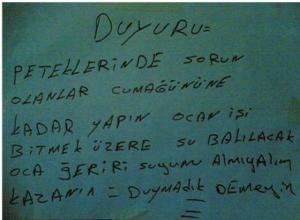 DUYURU=
PETEKLERİNDE SORUN
OLANLAR CUMAĞÜNÜNE
KADAR YAPIN OCAN İŞİ
BİTMEK ÜZERE SU BAKILACAK
OCA ĞERİRİ SUYUMU ALMIYALIM
KAZANIA = DUYMADIK DEMEYİN